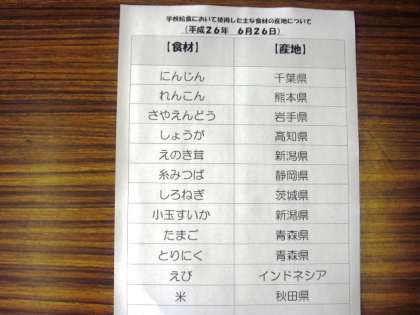 学校給食において使用した主な食材の産地について
(平成26年 6月26日)
【食材】 【産地】
にんじん 千葉県
れんこん 熊本県
さやえんどう 岩手県
しょうが 高知県
えのき茸 新潟県
糸みつば 静岡県
しろねぎ 茨城県
小玉すいか 新潟県
たまご 青森県
とりにく 青森県
えび インドネシア
米 秋田県